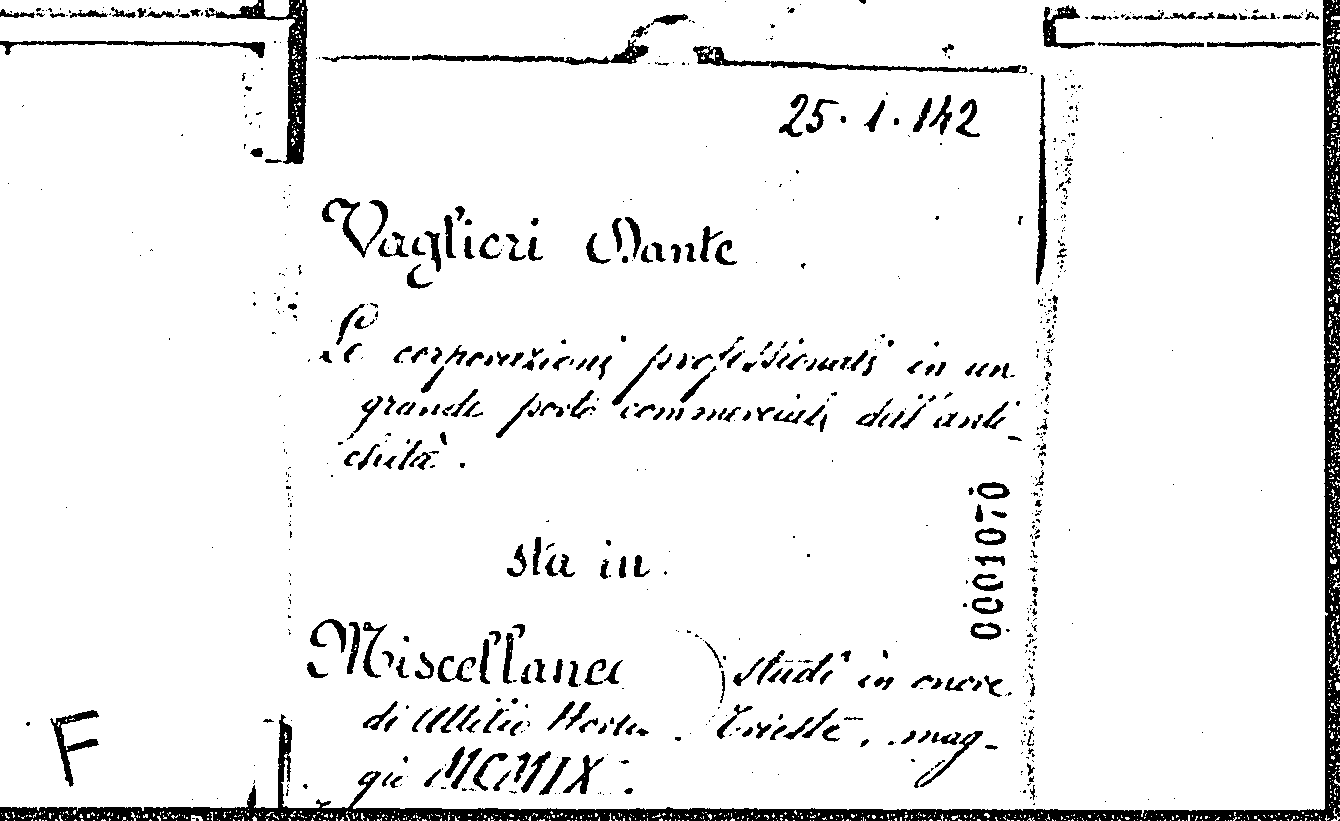 25.1.142
Vaglieri Dante
Le corporazioni professionali in un
grande porto commerciale dell'anti-
chità.
sta in
0001070
Miscellanea ) studi in onore
di Attilio Hortis. Trieste, mag-
gio MCMIX.
F